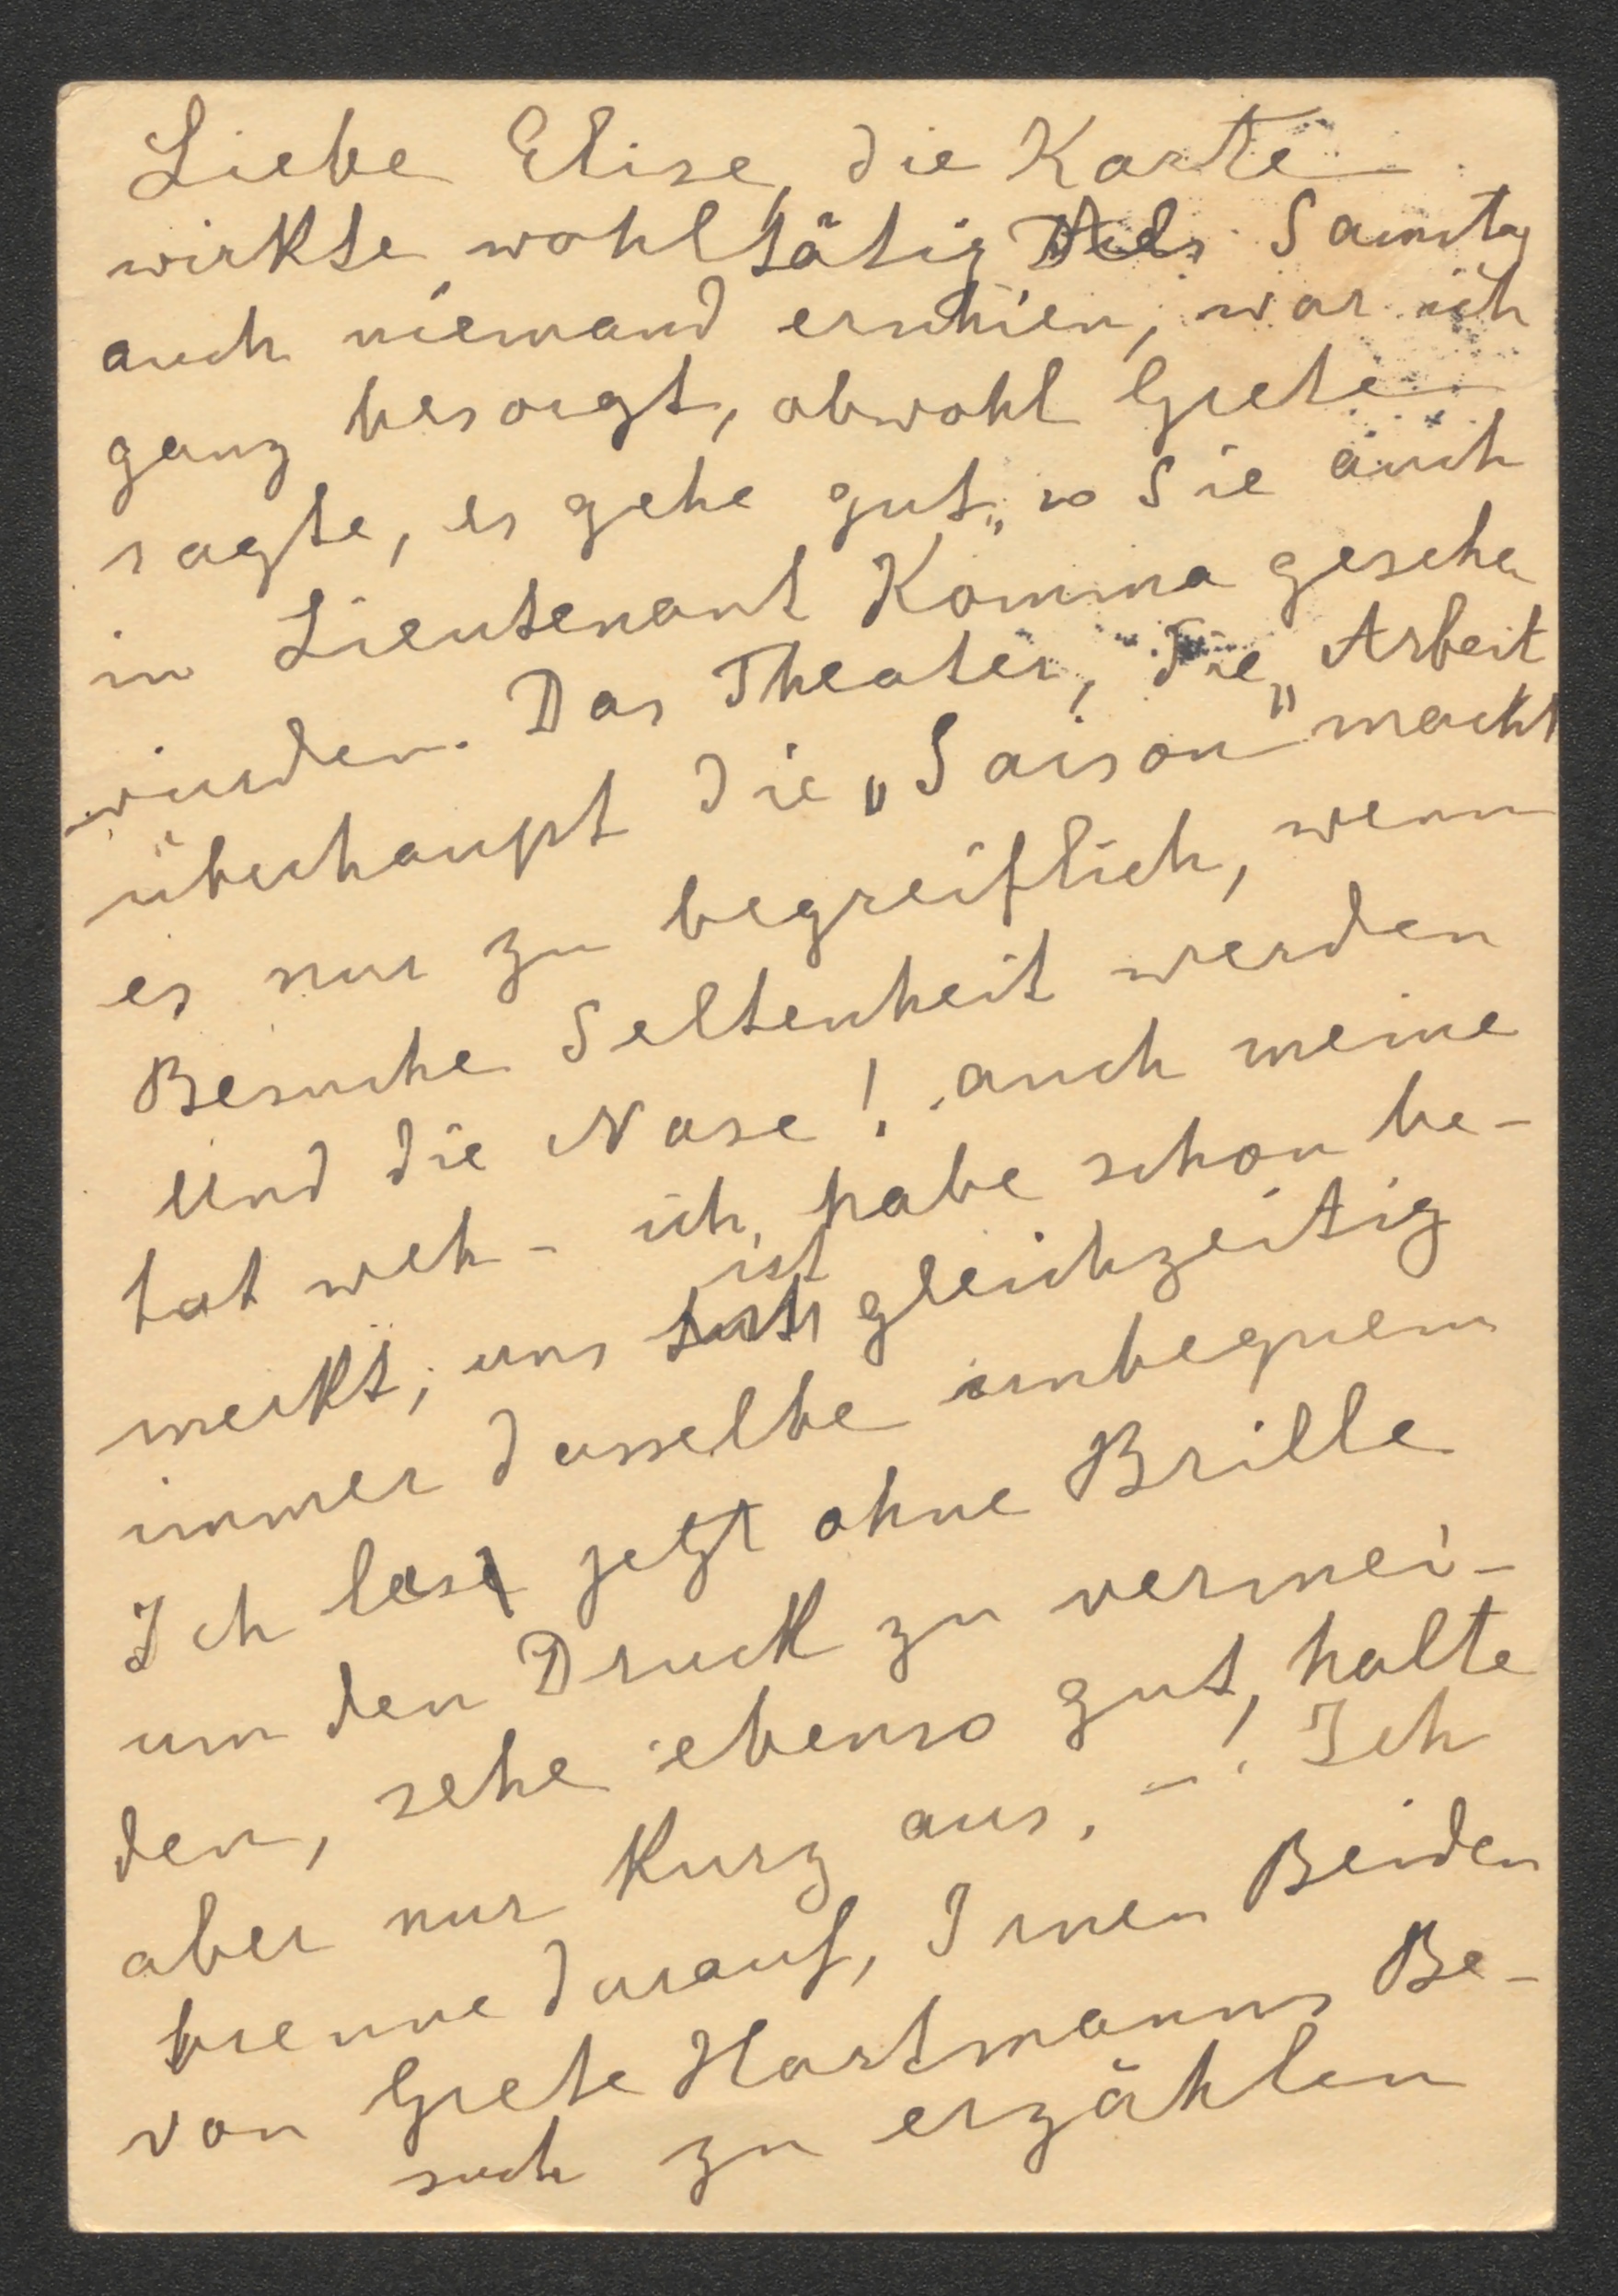 Liebe Elise, die Karte
wirkte wohltätig Als Samstag
auch niemand erschien, war ich
ganz besorgt, obwohl Grete
sagte, es gehe gut, so Sie auch
in Lieutenant Komma gesehen
wurden. Das Theater, die „Arbeit
überhaupt die „Saison" macht
es nur zu begreiflich, wenn
Besuche Seltenheit werden
Und die Nase! auch meine
tat weh - ich habe schon be-
merkt, uns ist gleichzeitig
immer dasselbe unbequem
Ich lese jetzt ohne Brille
um den Druck zu vermei-
den, sehe ebenso gut, halte
aber nur kurz aus. -! Ich
brenne darauf, Ihnen Beiden
von Grete Hartmanns Be-
such zu erzählen